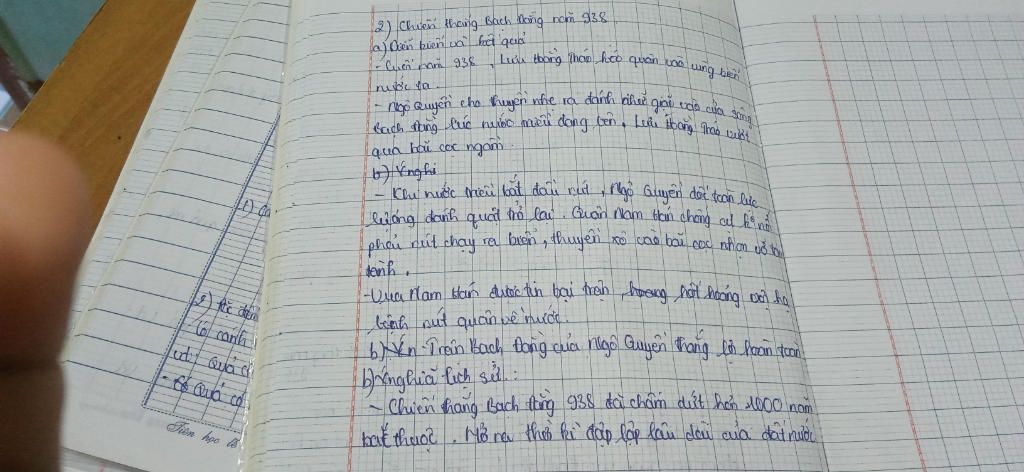 2) Chiến thắng Bạch Đằng năm 938
a) Diễn biến và kết quả
- Cuối năm 938, Lưu Hoằng Tháo kéo quân vào vùng biển
nước ta
- Ngô Quyền cho thuyền nhẹ ra đánh nhử giặc vào cửa sông
Bạch Đằng lúc nước triều đang lên, Lưu Hoằng Tháo vượt
qua bãi cọc ngầm.
b) Ý nghĩ
- Khi nước triều bắt đầu rút, Ngô Quyền dốc toàn lực
lượng đánh quật trở lại. Quân Nam Hán chống cự không nổi
phải rút chạy ra biển, thuyền xô vào bãi cọc nhọn vỡ tan
tành.
- Vua Nam Hán được tin bại trận, hoảng hốt hoảng vội hạ
lệnh rút quân về nước.
b) Vn-Trận Bạch Đằng của Ngô Quyền thắng lợi hoàn toàn
b) Ý nghĩa lịch sử:
- Chiến thắng Bạch Đằng 938 đã chấm dứt hơn 1000 năm
bắt thuộc. Mở ra thời kì độc lập lâu dài của đất nước
1)
2)
Tiên học lễ